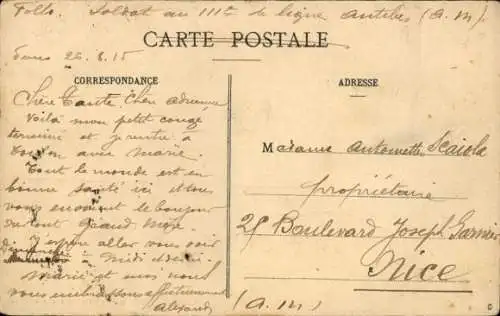 Soldat au 111e de ligne Antibes (A. M)
CARTE POSTALE
26.8.15
CORRESPONDANCE
ADRESSE
Chère Tante, Cher Adrienne
Voilà mon petit congé
terminé et je rentre à
avec Marie.
Tout le monde est en
bonne santé ici et tous
vous envoient le bonjour
surtout Grand Mère.
J'espère aller vous voir
à Midi
Marie et moi nous
vous embrassons affectueusement
Madame Antoinette Scaiola
propriétaire
25 Boulevard Joseph Garnier
Nice
(A. M)